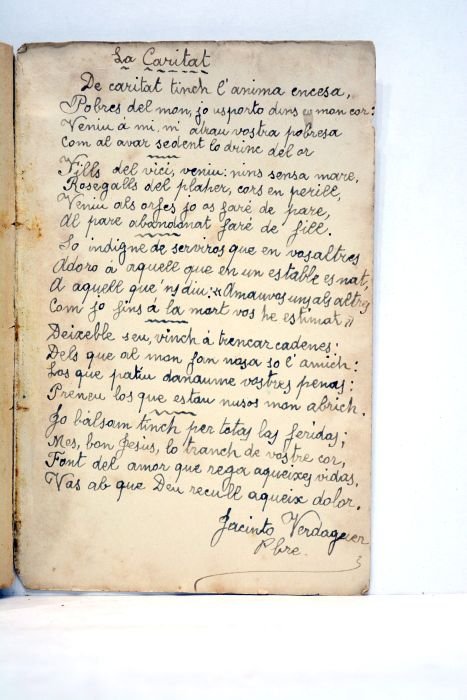 La Caritat
De caritat tinch l'anima encesa,
Pobres del mon, jo us porto dins en mon cor:
Veniu á mi, m'atrau vostra pobresa
Com al avar sedent lo drinc del or
Fills del vici, veniu: nins sensa mare,
Rosegalls del plaher, cors en perill,
Veniu als orfes jo os faré de pare,
Al pare abandonat faré de fill.
So indigne de serviros que en vosaltres
Adoro á aquell que en un estable es nat,
A aquell que 'ns diu: «Amauvos uns als altres
Com jo fins á la mort vos he estimat.»
Deixeble seu, vinch á trencar cadenes:
Dels que al mon fan nosa so l'amich:
Los que patiu donaume vostres penas:
Preneu los que estau nusos mon abrich.
Jo bàlsam tinch per totas las feridas;
Mes, bon Jesus, lo tranch de vostre cor,
Font del amor que rega aqueixes vidas,
Vas ab que Deu recull aqueix dolor.
Jacinto Verdaguer
Pbre.